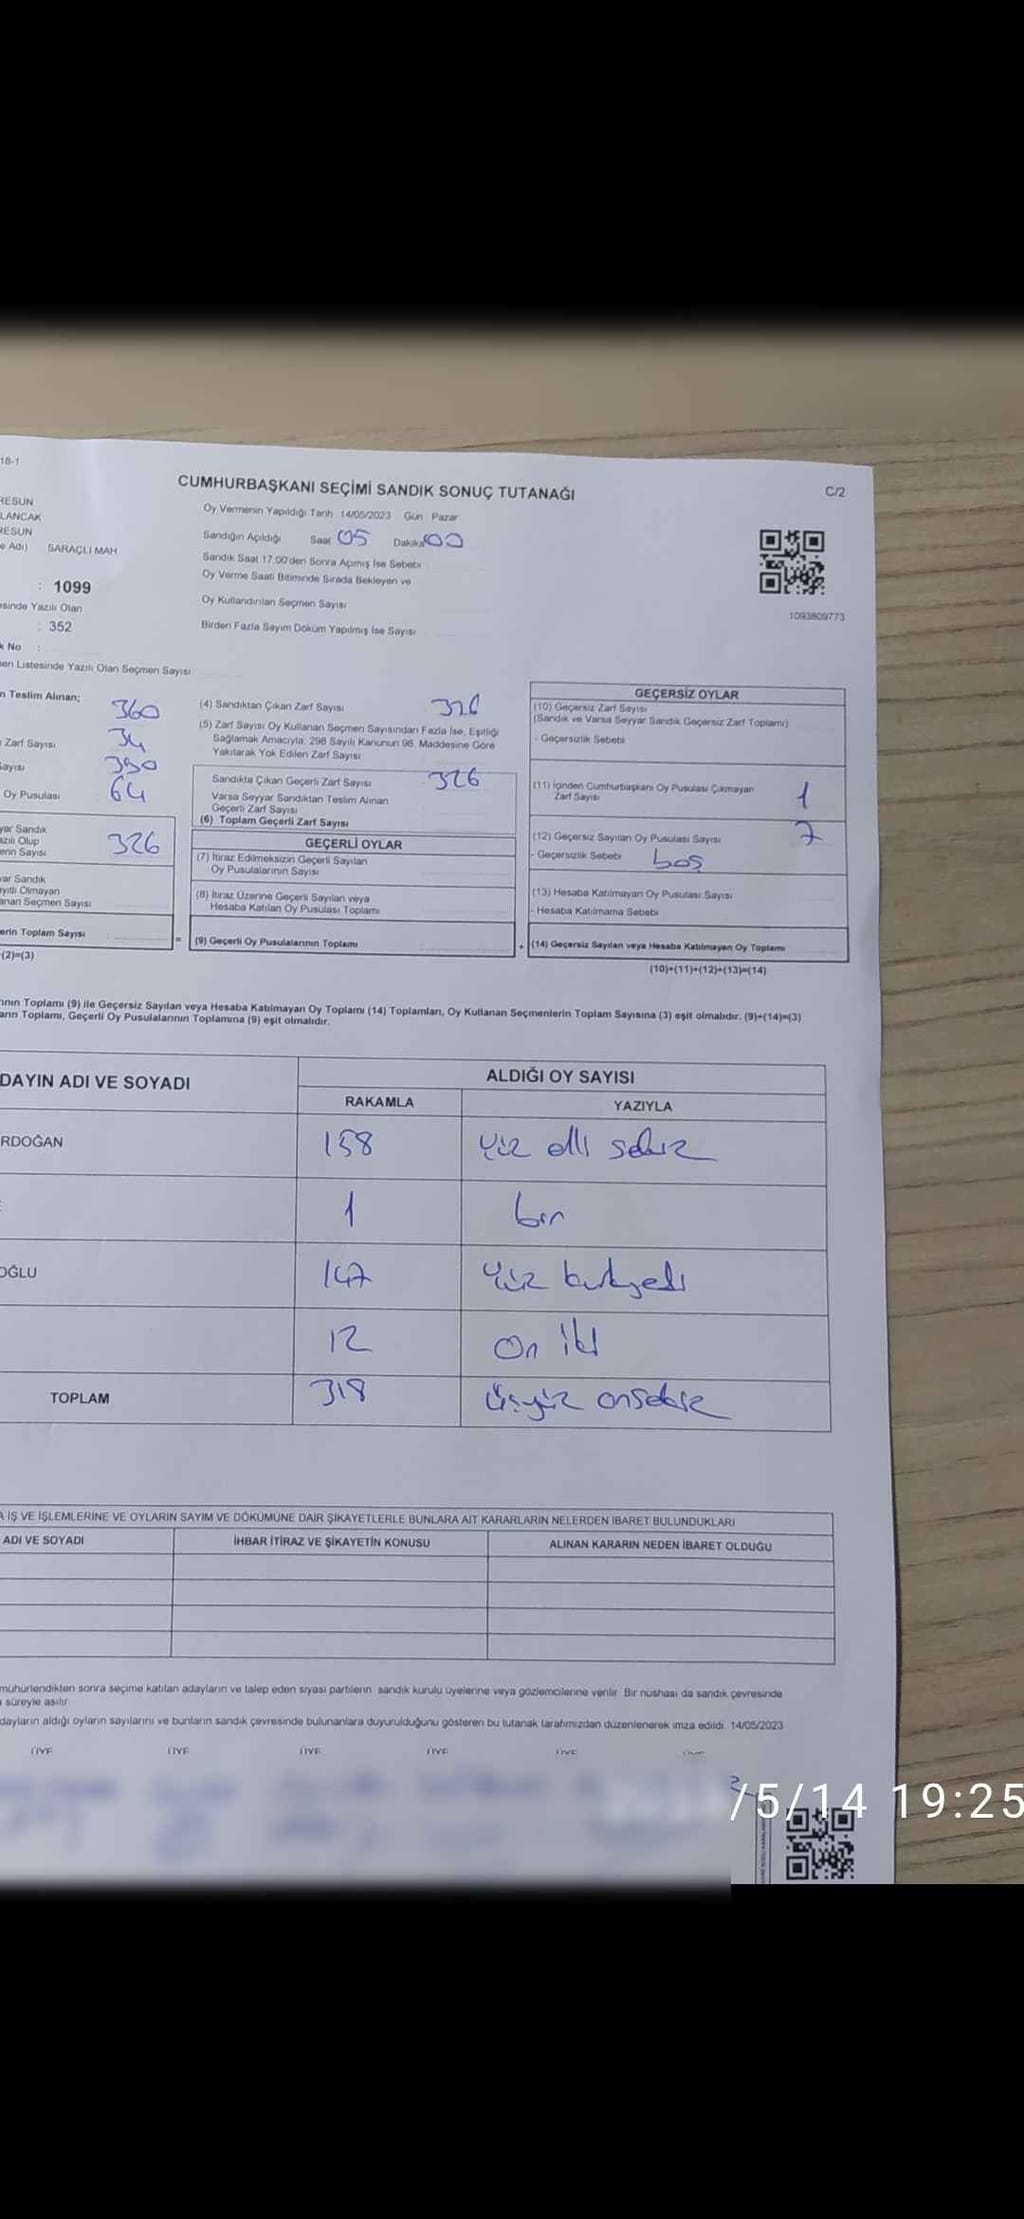 18-1
CUMHURBAŞKANI SEÇİMİ SANDIK SONUÇ TUTANAĞI
C/2
RESUN
LANCAK
RESUN
e Adı) SARAÇLI MAH
: 1099
esinde Yazılı Olan
: 352
k No :
en Listesinde Yazılı Olan Seçmen Sayısı
Oy Vermenin Yapıldığı Tarih 14/05/2023 Gün Pazar
Sandığın Açıldığı Saat 05 Dakika 00
Sandık Saat 17.00'den Sonra Açımış İse Sebebi
Oy Verme Saati Bitiminde Sırada Bekleyen ve
Oy Kullandırılan Seçmen Sayısı
Birden Fazla Sayım Döküm Yapılmış İse Sayısı
1093809773
n Teslim Alınan;
360
Zarf Sayısı 34
Sayısı
Oy Pusulası 64
yar Sandık
azılı Olup
erin Sayısı
326
yar Sandık
ayıtlı Olmayan
anan Seçmen Sayısı
erin Toplam Sayısı
(2)=(3)
(4) Sandıktan Çıkan Zarf Sayısı 326
(5) Zarf Sayısı Oy Kullanan Seçmen Sayısından Fazla İse, Eşitliği
Sağlamak Amacıyla; 298 Sayılı Kanunun 98. Maddesine Göre
Yakılarak Yok Edilen Zarf Sayısı
Sandıkta Çıkan Geçerli Zarf Sayısı 326
Varsa Seyyar Sandıktan Teslim Alınan
Geçerli Zarf Sayısı
(6) Toplam Geçerli Zarf Sayısı
GEÇERLİ OYLAR
(7) İtiraz Edilmeksizin Geçerli Sayılan
Oy Pusulalarının Sayısı
(8) İtiraz Üzerine Geçerli Sayılan veya
Hesaba Katılan Oy Pusulası Toplamı
= (9) Geçerli Oy Pusulalarının Toplamı
GEÇERSİZ OYLAR
(10) Geçersiz Zarf Sayısı
(Sandık ve Varsa Seyyar Sandık Geçersiz Zarf Toplamı)
- Geçersizlik Sebebi
(11) İçinden Cumhurbaşkanı Oy Pusulası Çıkmayan
Zarf Sayısı
1
(12) Geçersiz Sayılan Oy Pusulası Sayısı 7
- Geçersizlik Sebebi boş
(13) Hesaba Katılmayan Oy Pusulası Sayısı
- Hesaba Katılmama Sebebi
+ (14) Geçersiz Sayılan veya Hesaba Katılmayan Oy Toplamı
(10)+(11)+(12)+(13)=(14)
rının Toplamı (9) ile Geçersiz Sayılan veya Hesaba Katılmayan Oy Toplamı (14) Toplamları, Oy Kullanan Seçmenlerin Toplam Sayısına (3) eşit olmalıdır. (9)+(14)=(3)
arın Toplamı, Geçerli Oy Pusulalarının Toplamına (9) eşit olmalıdır.
DAYIN ADI VE SOYADI
ALDIĞI OY SAYISI
RAKAMLA YAZIYLA
RDOĞAN 158 yüz elli sekiz
1 bir
OĞLU 147 yüz kırkyedi
12 on iki
TOPLAM 318 üçyüz onsekiz
A İŞ VE İŞLEMLERİNE VE OYLARIN SAYIM VE DÖKÜMÜNE DAİR ŞİKAYETLERLE BUNLARA AİT KARARLARIN NELERDEN İBARET BULUNDUKLARI
ADI VE SOYADI İHBAR İTİRAZ VE ŞİKAYETİN KONUSU ALINAN KARARIN NEDEN İBARET OLDUĞU
mühürlendikten sonra seçime katılan adayların ve talep eden siyasi partilerin sandık kurulu üyelerine veya gözlemcilerine verilir. Bir nüshası da sandık çevresinde
süreyle asılır.
dayların aldığı oyların sayılarını ve bunların sandık çevresinde bulunanlara duyurulduğunu gösteren bu tutanak tarafımızdan düzenlenerek imza edildi. 14/05/2023
ÜYE ÜYE ÜYE ÜYE ÜYE
/5/14 19:25